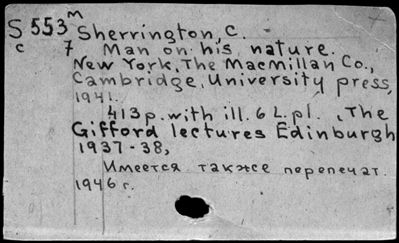 S 553 m Sherrington, C.
c 7 Man on his nature.
New York, The Macmillan Co.,
Cambridge, University press,
1941.
413 p. with ill. 6 L. pl. , The
Gifford lectures Edinburgh
1937-38,
Имеется также перепечат.
1946 г.